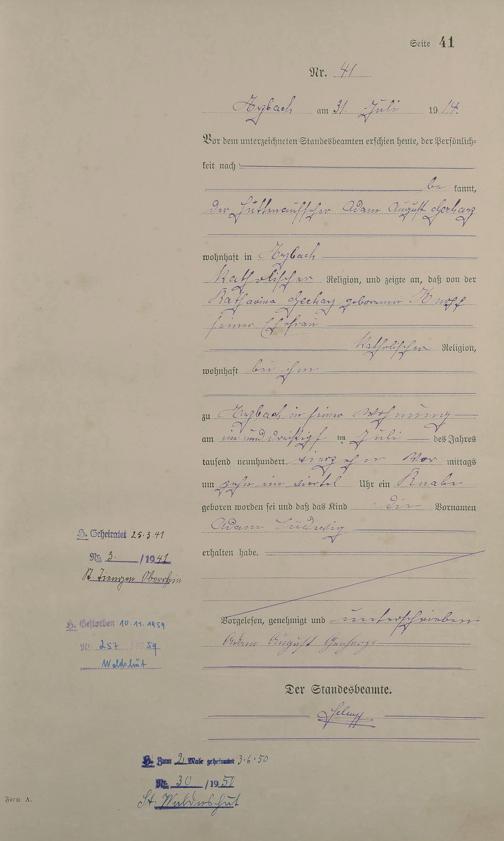 Seite 41
Nr. 41
am 31 Juli 1914.
Vor dem unterzeichneten Standesbeamten erschien heute, der Persönlich-
keit nach
be kannt,
der Hüttenaufseher Adam August Gerharz
wohnhaft in
Katholischer Religion, und zeigte an, daß von der
Katharina Gerharz geborenen
seiner Ehefrau
Katholischer Religion,
wohnhaft bei ihm
zu in seiner Wohnung
am ein und dreißigst en Juli des Jahres
tausend neunhundert vierzehn Vor mittags
um zehn ein viertel Uhr ein Knabe
geboren worden sei und daß das Kind die Vornamen
Adam Ludwig
erhalten habe.
H. Geheiratet 25.3.41
Nr. 3 /1941
Vorgelesen, genehmigt und unterschrieben
Adam August Gerharz
H. Gestorben 10.11.1959
Nr. 257 59
Waldshut
Der Standesbeamte.
H. Zum 2. Male geheiratet 3.6.50
Nr. 30 /1950
St. Waldshut
Form A.